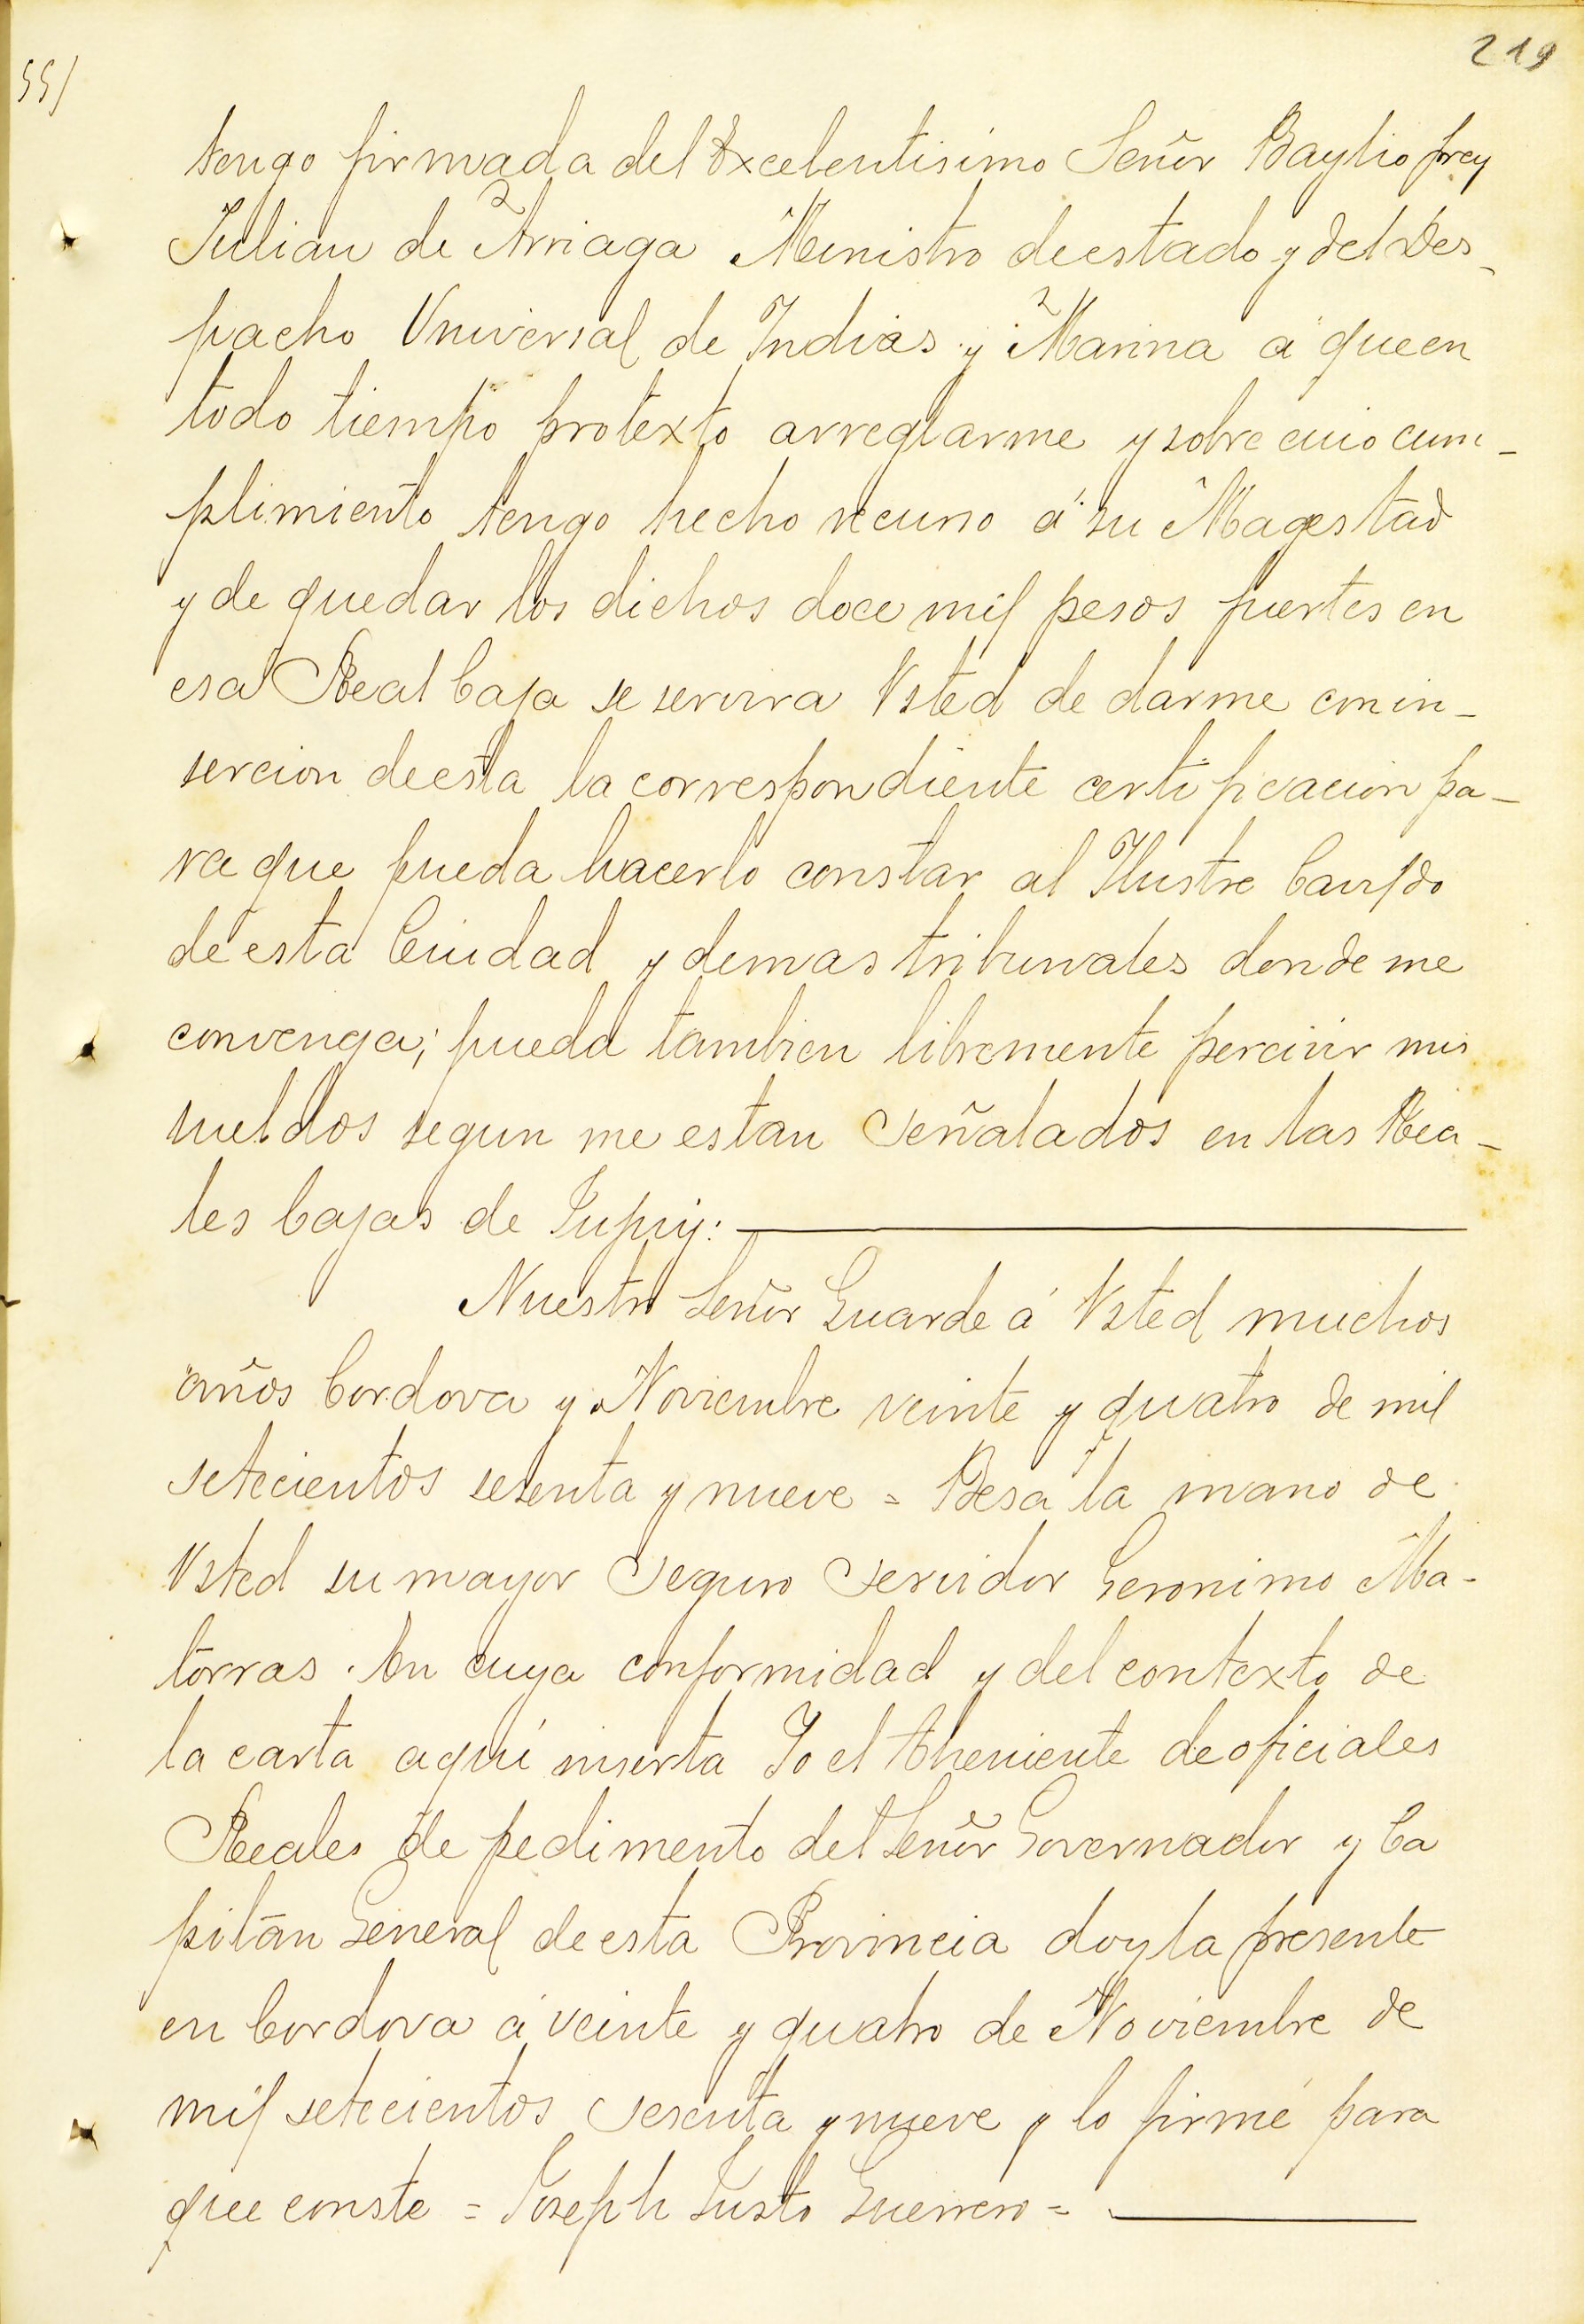 219
551
tengo firmada del Excelentisimo Señor Baylio frey
Julian de Arriaga Ministro de estado y del Des_
pacho Vniversal de Indias y Marina a que en
todo tiempo protexto arreglarme y sobre cuio cum_
plimiento tengo hecho recurso á su Magestad
y de quedar los dichos doce mil pesos fuertes en
esa Real Caja se servira Vsted de darme con in_
sercion de esta la correspondiente certificacion pa_
ra que pueda hacerlo constar al Ilustre Cavildo
de esta Ciudad y demas tribunales donde me
convenga; pueda tambien libremente percivir mis
sueldos segun me estan señalados en las Rea_
les Cajas de Jujuy:
Nuestro Señor Guarde á Vsted muchos
años Cordova y Noviembre veinte y quatro de mil
setecientos sesenta y nueve = Besa la mano de
Vsted su mayor seguro servidor Geronimo Ma-
torras. En cuya conformidad y del contexto de
la carta aquí inserta Yo el Theniente de oficiales
Reales de pedimento del Señor Governador y Ca
pitan General de esta Provincia doy la presente
en Cordova á veinte y quatro de Noviembre de
mil setecientos sesenta y nueve y lo firmé para
que conste = Joseph Justo Guerrero =